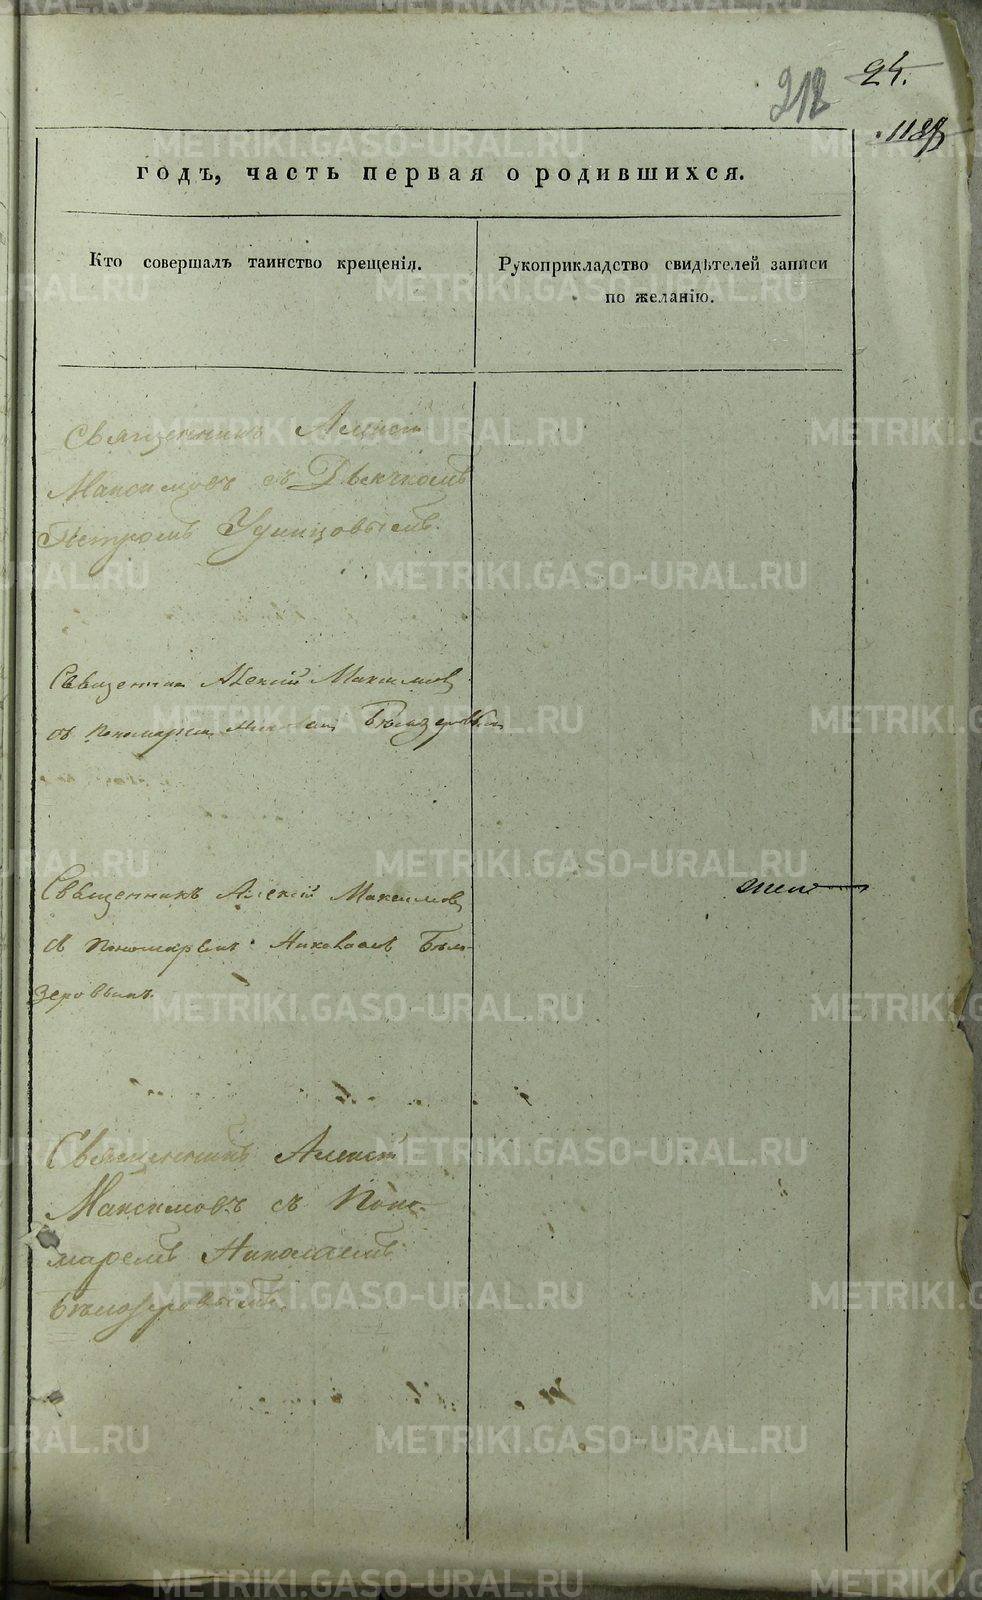 24.
212
годъ, часть первая о родившихся.
Кто совершалъ таинство крещенія.
Рукоприкладство свидѣтелей записи
по желанію.
Священникъ Алексій
Максимовъ съ Дьячкомъ
Петромъ Удинцовымъ.
Священник Алексій Максимов
съ пономарем Бѣлозеровым
Священникъ Алексій Максимов
съ Пономаремъ Николаем Бѣло
зеровымъ.
Священникъ Алексій
Максимовъ съ Поно-
маремъ Николаемъ
Бѣлозеровымъ.
METRIKI.GASO-URAL.RU